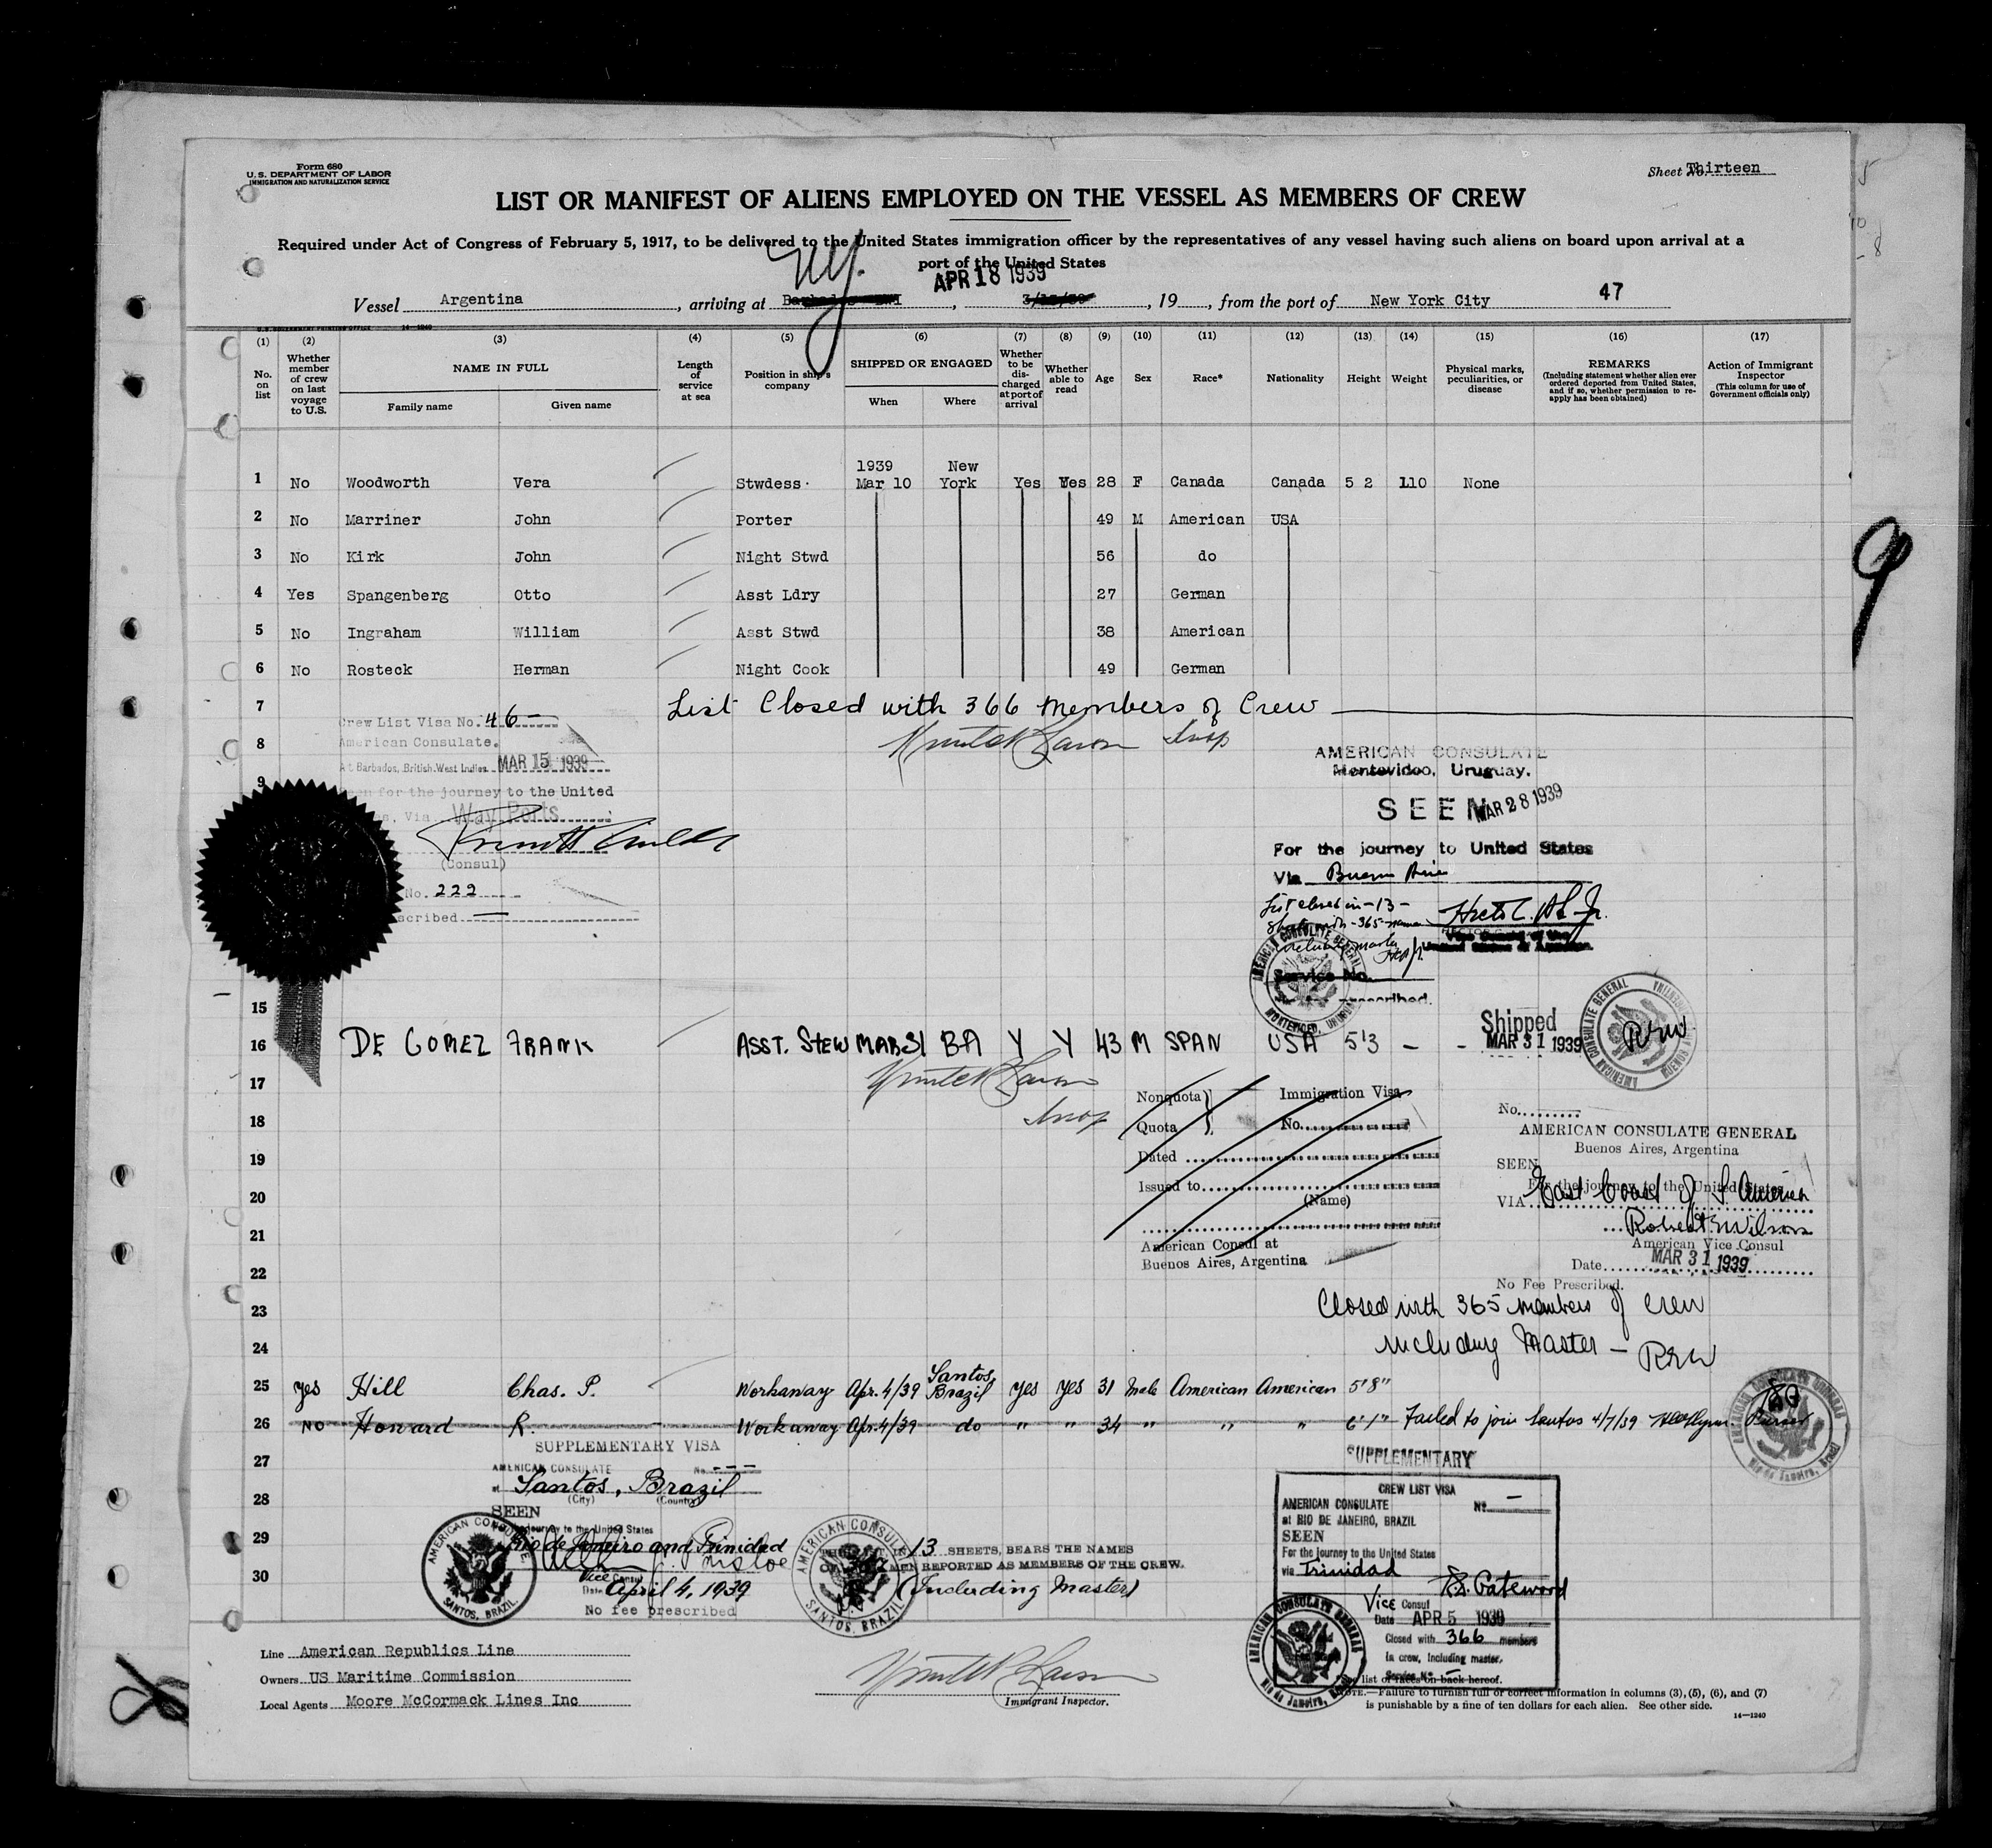 Form 680
U. S. DEPARTMENT OF LABOR
IMMIGRATION AND NATURALIZATION SERVICE
Sheet No. Thirteen
LIST OR MANIFEST OF ALIENS EMPLOYED ON THE VESSEL AS MEMBERS OF CREW
Required under Act of Congress of February 5, 1917, to be delivered to the United States immigration officer by the representatives of any vessel having such aliens on board upon arrival at a
port of the United States
N.Y.
APR 18 1939
Vessel Argentina, arriving at Barbados BWI, 3/15/39, 19, from the port of New York City 47
(1) (2) (3) (4) (5) (6) (7) (8) (9) (10) (11) (12) (13) (14) (15) (16) (17)
No. on list
Whether member of crew on last voyage to U.S.
NAME IN FULL
Family name Given name
Length of service at sea
Position in ship's company
SHIPPED OR ENGAGED
When Where
Whether to be discharged at port of arrival
Whether able to read
Age
Sex
Race*
Nationality
Height
Weight
Physical marks, peculiarities, or disease
REMARKS
(Including statement whether alien ever ordered deported from United States, and if so, whether permission to reapply has been obtained)
Action of Immigrant Inspector
(This column for use of Government officials only)
1939 New
1 No Woodworth Vera Stwdess Mar 10 York Yes Yes 28 F Canada Canada 5 2 110 None
2 No Marriner John Porter 49 M American USA
3 No Kirk John Night Stwd 56 do
4 Yes Spangenberg Otto Asst Ldry 27 German
5 No Ingraham William Asst Stwd 38 American
6 No Rosteck Herman Night Cook 49 German
7 List Closed with 366 Members of Crew
Crew List Visa No. 46
8 Insp
American Consulate.
At Barbados, British West Indies. MAR 15 1939
9
for the journey to the United
Via Way Ports
(Consul)
No. 222
AMERICAN CONSULATE
Montevideo, Uruguay.
SEEN MAR 28 1939
For the journey to United States
Via Buenos Aires
List closed in -13-
Service No.
AMERICAN CONSULATE GENERAL
MONTEVIDEO, URUGUAY
15
Shipped
MAR 31 1939
16 DE GOMEZ FRANK ASST. STEW MAR 31 BA Y Y 43 M SPAN USA 5'3 - -
REW
17
Insp
18
19
20
21
22
23
24
Nonquota
Quota
Immigration Visa
No.
Dated
Issued to
(Name)
American Consul at
Buenos Aires, Argentina
No.
AMERICAN CONSULATE GENERAL
Buenos Aires, Argentina
SEEN
For the journey to the United States
VIA East Coast of S. America
Robert E Wilson
American Vice Consul
Date MAR 31 1939
No Fee Prescribed.
Closed with 365 members of crew
including Master - REW
25 Yes Hill Chas. P. Workaway Apr. 4/39 Santos, Brazil Yes Yes 31 Male American American 5'8"
26 No Howard R. Workaway Apr. 4/39 do " " 34 " " " 6'1" Failed to join Santos 4/7/39 Purser
27
28
29
30
SUPPLEMENTARY VISA
AMERICAN CONSULATE No. ---
at Santos, Brazil
(City) (Country)
SEEN
journey to the United States
Rio de Janeiro and Trinidad
Vice Consul
Date April 4, 1939
No fee prescribed
AMERICAN CONSULATE
SANTOS, BRAZIL
13 SHEETS, BEARS THE NAMES
MEN REPORTED AS MEMBERS OF THE CREW.
(Including Master)
SUPPLEMENTARY
CREW LIST VISA
AMERICAN CONSULATE No. -
at RIO DE JANEIRO, BRAZIL
SEEN
For the journey to the United States
via Trinidad
Vice Consul
Date APR 5 1939
Closed with 366 members
in crew, including master.
AMERICAN CONSULATE GENERAL
Rio de Janeiro, Brazil
Line American Republics Line
Owners US Maritime Commission
Local Agents Moore McCormack Lines Inc
Immigrant Inspector.
list of races on back hereof.
NOTE.—Failure to furnish full or correct information in columns (3), (5), (6), and (7)
is punishable by a fine of ten dollars for each alien. See other side.
14—1240
9